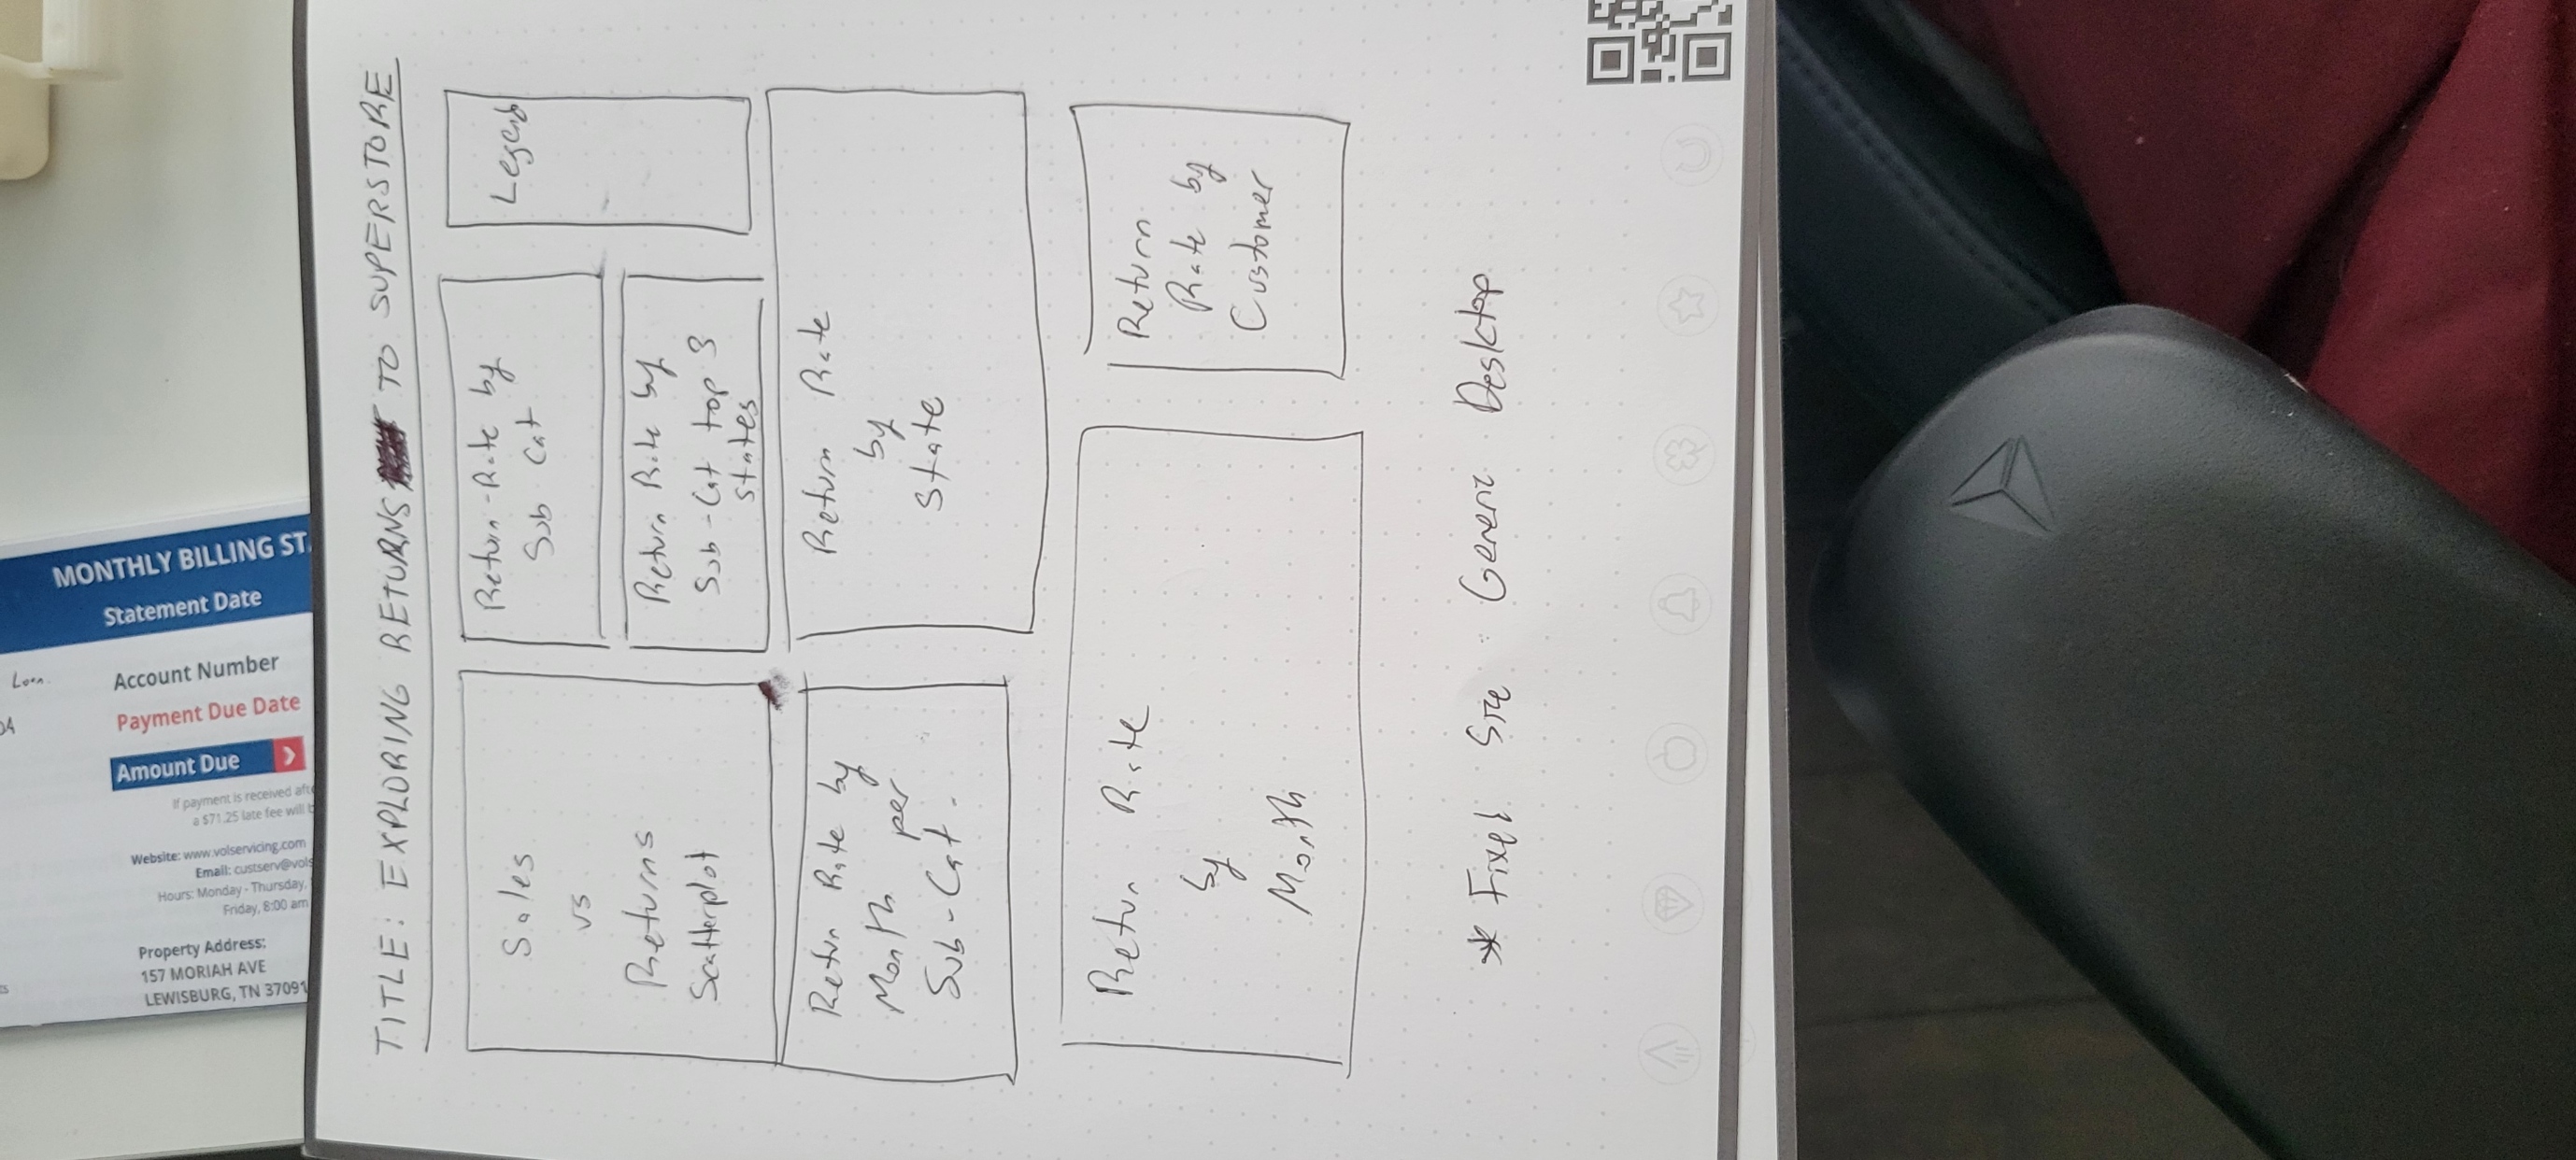 MONTHLY BILLING ST
Statement Date
Account Number
Payment Due Date
Amount Due
If payment is received aft
a $71.25 late fee will b
Website: www.volservicing.com
Email: custserv@vols
Hours: Monday - Thursday,
Friday, 8:00 am
Property Address:
157 MORIAH AVE
LEWISBURG, TN 37091
TITLE: EXPLORING RETURNS TO SUPERSTORE
Sales
vs
Returns
Scatterplot
Return-Rate by
Sub Cat
Legend
Return Rate by
Sub-Cat top 3
states
Retur Rate by
Month per
Sub-Cat.
Return Rate
by
State
Retur Rate
by
Month
Return
Rate by
Customer
* Fixed Size Generic Desktop